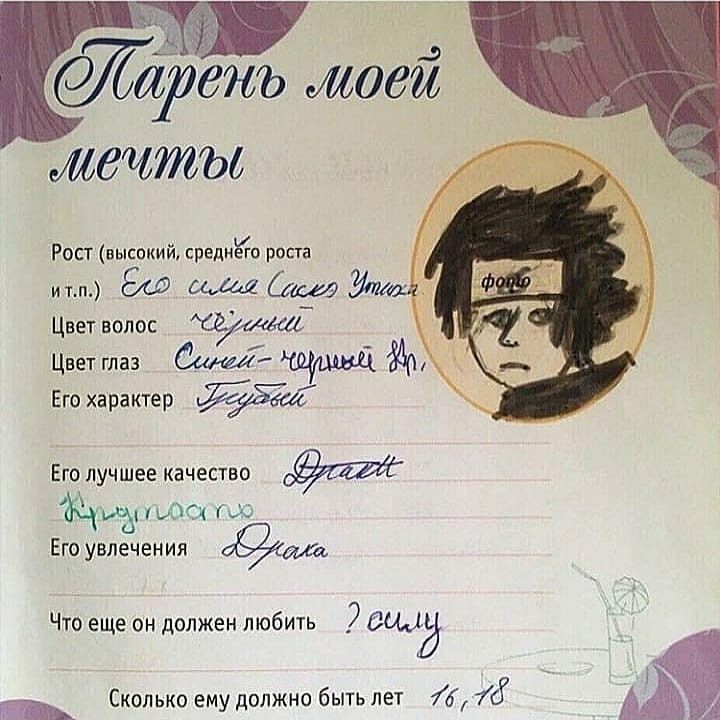 Парень моей
мечты
фото
Рост (высокий, среднего роста
и т.п.) Его имя Саскэ Учиха
Цвет волос чёрный
Цвет глаз Синей-черный Кр,
Его характер Грубый
Его лучшее качество Драки
Крутость
Его увлечения Драка
Что еще он должен любить ? силу
Сколько ему должно быть лет 16, 18